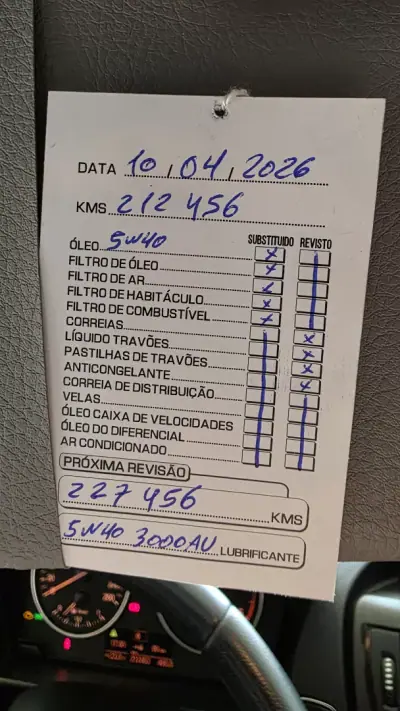 DATA 10 / 04 / 2026
KMS 212 456
SUBSTITUIDO REVISTO
ÓLEO 5W40 x
FILTRO DE ÓLEO x
FILTRO DE AR x
FILTRO DE HABITÁCULO x
FILTRO DE COMBUSTÍVEL x
CORREIAS
LÍQUIDO TRAVÕES x
PASTILHAS DE TRAVÕES x
ANTICONGELANTE x
CORREIA DE DISTRIBUIÇÃO x
VELAS
ÓLEO CAIXA DE VELOCIDADES
ÓLEO DO DIFERENCIAL
AR CONDICIONADO
PRÓXIMA REVISÃO
227 456 KMS
5W40 3000AU LUBRIFICANTE